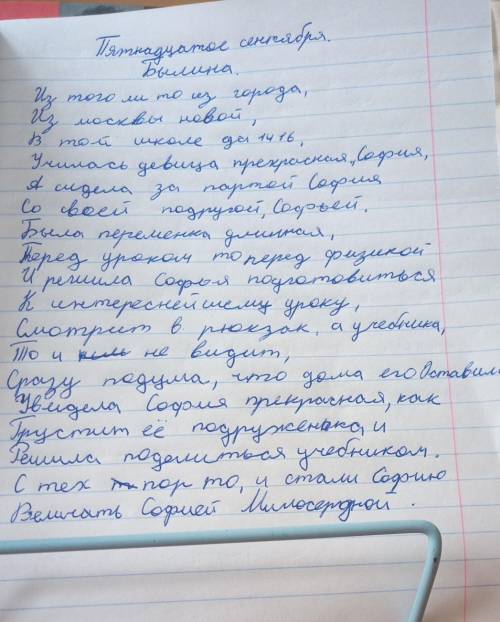 Пятнадцатое сентября.
Былина.
Из того ли то из города,
Из москвы новой,
В той школе да 1416,
Училась девица прекрасная, София,
А сидела за партой София
Со своей подругой, Софьей.
Была переменка длинная,
Перед уроком то перед физикой
И решила Софья подготовиться
К интереснейшему уроку,
Смотрит в рюкзак, а учебника,
То и не видит,
Сразу подума, что дома его Оставил
Увидела София прекрасная, как
Грустит её подруженька, и
Решила поделиться учебником.
С тех пор то, и стали Софию
Величать Софией Милосердной I.